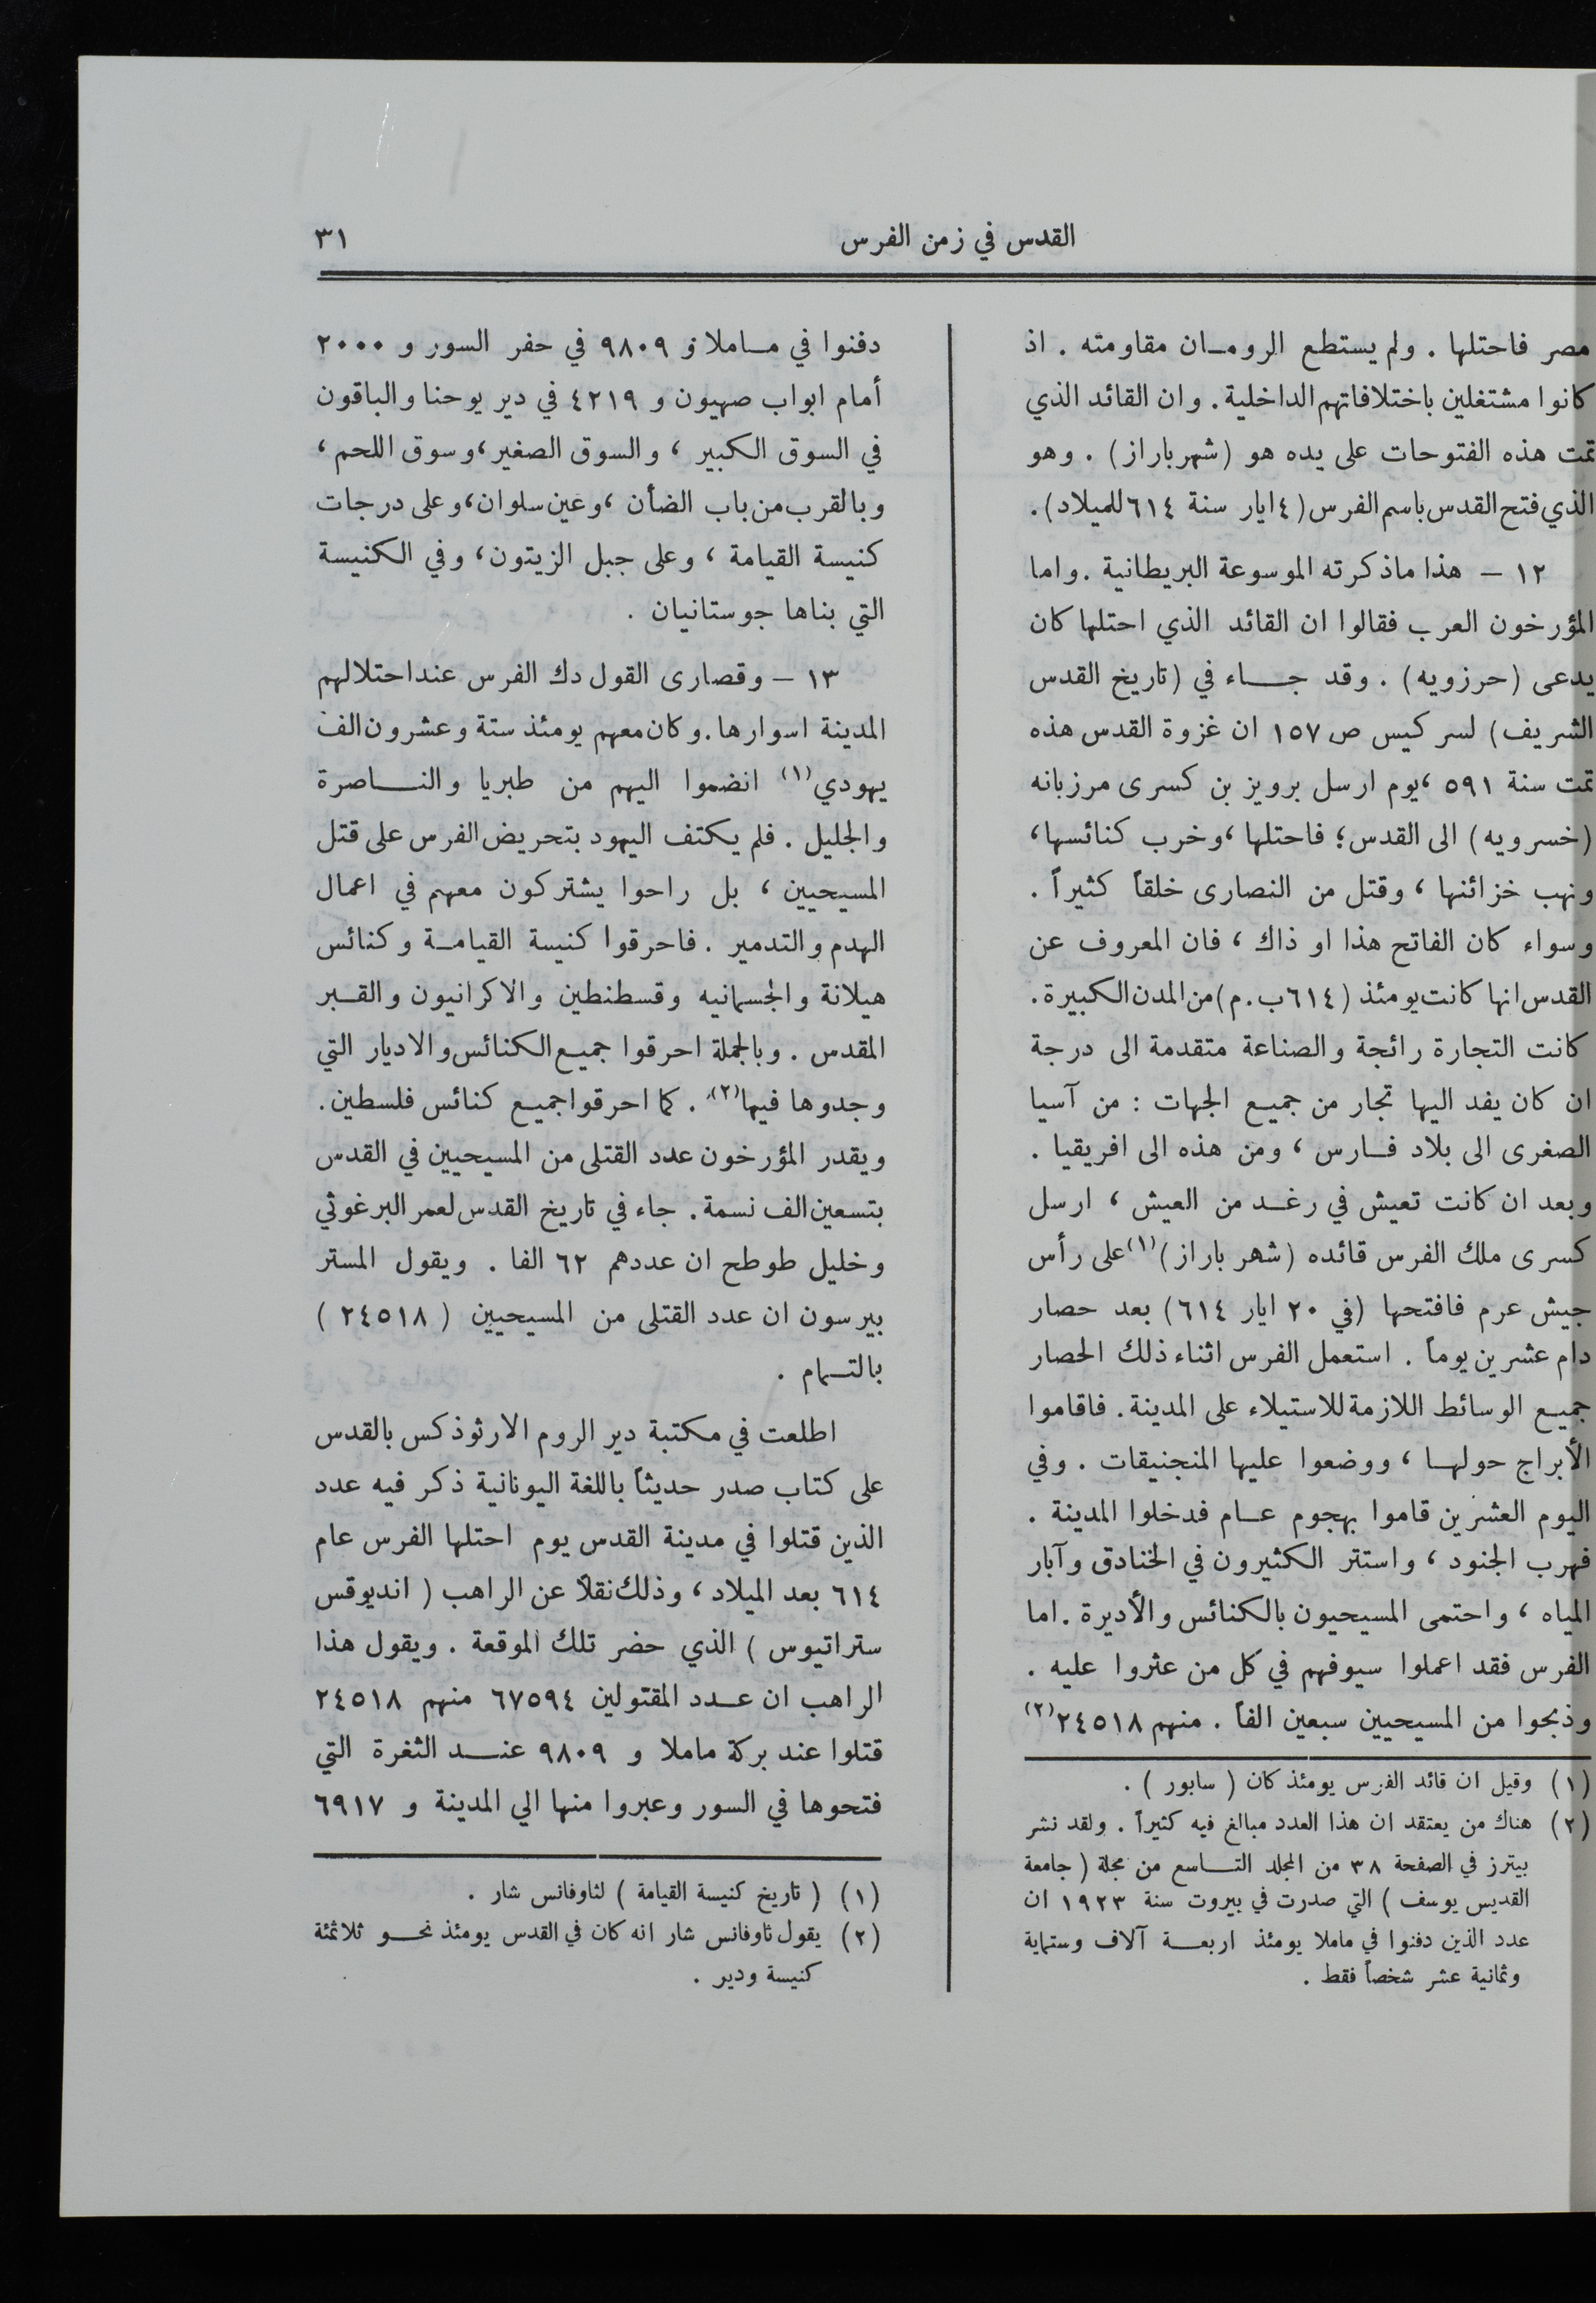 القدس في زمن الفرس
٣١
مصر فاحتلها . ولم يستطع الرومـان مقاومته . اذ
كانوا مشتغلين باختلافاتهم الداخلية . وان القائد الذي
تمت هذه الفتوحات على يده هو (شهرباراز) . وهو
الذي فتح القدس باسم الفرس (٤ ايار سنة ٦١٤ للميلاد) .
١٢ – هذا ماذكرته الموسوعة البريطانية . واما
المؤرخون العرب فقالوا ان القائد الذي احتلها كان
يدعى (حرزويه) . وقد جـاء في (تاريخ القدس
الشريف) لسركيس ص ١٥٧ ان غزوة القدس هذه
تمت سنة ٥٩١ ، يوم ارسل برويز بن كسرى مرزبانه
(خسرويه) الى القدس ؛ فاحتلها ، وخرب كنائسها ،
ونهب خزائنها ، وقتل من النصارى خلقاً كثيراً .
وسواء كان الفاتح هذا او ذاك ، فان المعروف عن
القدس انها كانت يومئذ (٦١٤ ب.م) من المدن الكبيرة .
كانت التجارة رائجة والصناعة متقدمة الى درجة
ان كان يفد اليها تجار من جميع الجهات : من آسيا
الصغرى الى بلاد فـارس ، ومن هذه الى افريقيا .
وبعد ان كانت تعيش في رغـد من العيش ، ارسل
كسرى ملك الفرس قائده (شهر باراز) (١) على رأس
جيش عرم فافتحها (في ٢٠ ايار ٦١٤) بعد حصار
دام عشرين يوماً . استعمل الفرس اثناء ذلك الحصار
جميع الوسائط اللازمة للاستيلاء على المدينة . فاقاموا
الأبراج حولهـا ، ووضعوا عليها المنجنيقات . وفي
اليوم العشرين قاموا بهجوم عـام فدخلوا المدينة .
فهرب الجنود ، واستتر الكثيرون في الخنادق وآبار
المياه ، واحتمى المسيحيون بالكنائس والأديرة . اما
الفرس فقد اعملوا سيوفهم في كل من عثروا عليه .
وذبحوا من المسيحيين سبعين الفاً . منهم ٢٤٥١٨ (٢)
(١) وقيل ان قائد الفرس يومئذ كان ( سابور ) .
(٢) هناك من يعتقد ان هذا العدد مبالغ فيه كثيراً . ولقد نشر
بيترز في الصفحة ٣٨ من المجلد التـاسع من مجلة ( جامعة
القديس يوسف ) التي صدرت في بيروت سنة ١٩٢٣ ان
عدد الذين دفنوا في ماملا يومئذ اربعـة آلاف وستماية
وثمانية عشر شخصاً فقط .
دفنوا في مـاملا و ٩٨٠٩ في حفر السور و ٢٠٠٠
أمام ابواب صهيون و ٤٢١٩ في دير يوحنا والباقون
في السوق الكبير ، والسوق الصغير ، وسوق اللحم ،
وبالقرب من باب الضأن ، وعين سلوان ، وعلى درجات
كنيسة القيامة ، وعلى جبل الزيتون ، وفي الكنيسة
التي بناها جوستانيان .
١٣ – وقصارى القول دك الفرس عند احتلالهم
المدينة اسوارها . وكان معهم يومئذ ستة وعشرون الف
يهودي (١) انضموا اليهم من طبريا والنـاصرة
والجليل . فلم يكتف اليهود بتحريض الفرس على قتل
المسيحيين ، بل راحوا يشتركون معهم في اعمال
الهدم والتدمير . فاحرقوا كنيسة القيامـة وكنائس
هيلانة والجسمانيه وقسطنطين والاكرانيون والقـبر
المقدس . وبالجملة احرقوا جميع الكنائس والاديار التي
وجدوها فيها (٢) . كما احرقوا جميع كنائس فلسطين .
ويقدر المؤرخون عدد القتلى من المسيحيين في القدس
بتسعين الف نسمة . جاء في تاريخ القدس لعمر البرغوثي
وخليل طوطح ان عددهم ٦٢ الفا . ويقول المستر
بيرسون ان عدد القتلى من المسيحيين ( ٢٤٥١٨ )
بالتـمام .
اطلعت في مكتبة دير الروم الارثوذكس بالقدس
على كتاب صدر حديثاً باللغة اليونانية ذكر فيه عدد
الذين قتلوا في مدينة القدس يوم احتلها الفرس عام
٦١٤ بعد الميلاد ، وذلك نقلاً عن الراهب ( انديوقس
ستراتيوس ) الذي حضر تلك الموقعة . ويقول هذا
الراهب ان عـدد المقتولين ٦٧٥٩٤ منهم ٢٤٥١٨
قتلوا عند بركة ماملا و ٩٨٠٩ عنـد الثغرة التي
فتحوها في السور وعبروا منها الي المدينة و ٦٩١٧
(١) ( تاريخ كنيسة القيامة ) لثاوفانس شار .
(٢) يقول ثاوفانس شار انه كان في القدس يومئذ نحـو ثلاثمئة
كنيسة ودير .